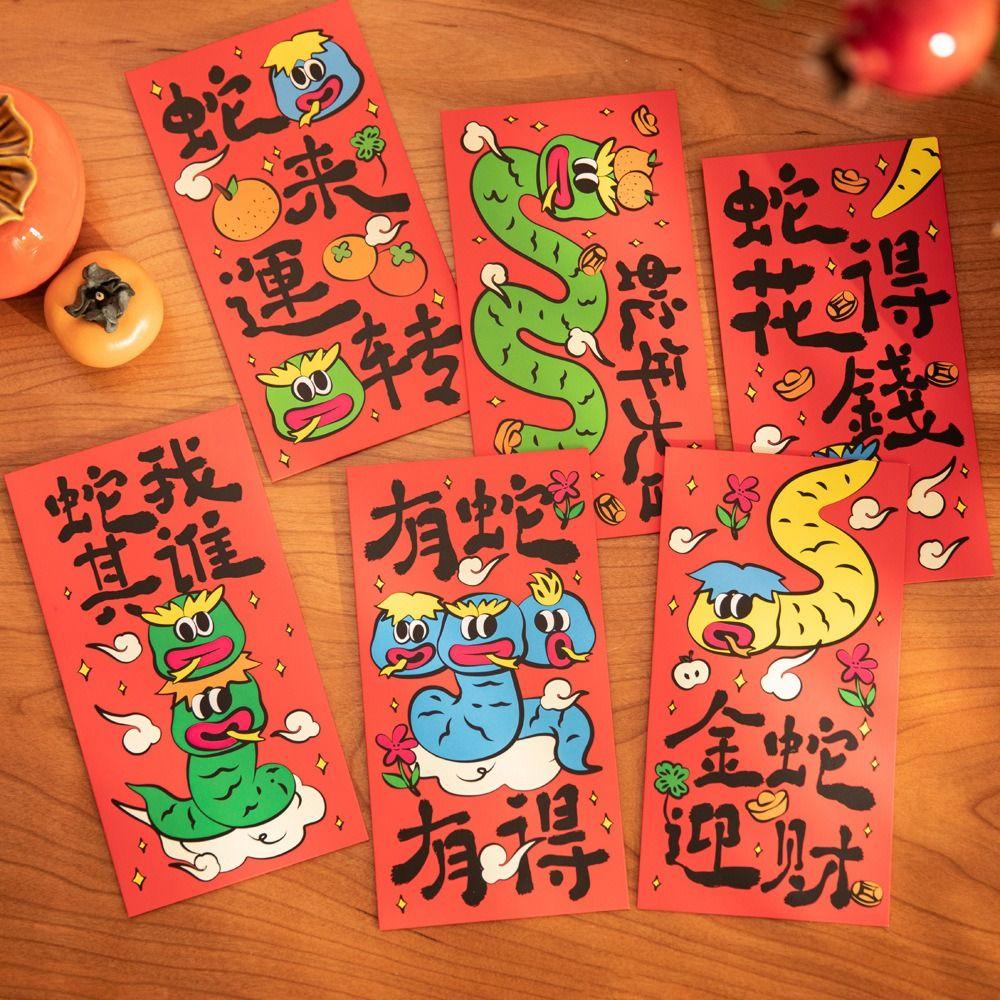 蛇来
運转
蛇年大
蛇得
花錢
蛇我
其谁
有蛇
有得
金蛇
迎财